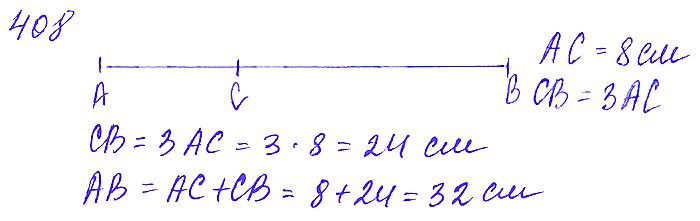 408
AC = 8 см
A C B CB = 3AC
CB = 3 AC = 3 · 8 = 24 см
AB = AC + CB = 8 + 24 = 32 см